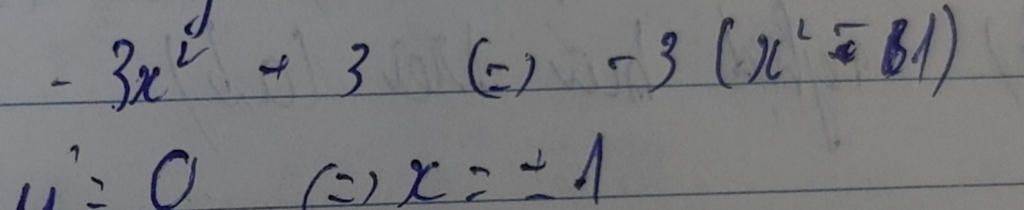 - 3x² + 3 (=) - 3 (x² - 1)
y' = 0 (=) x = ± 1